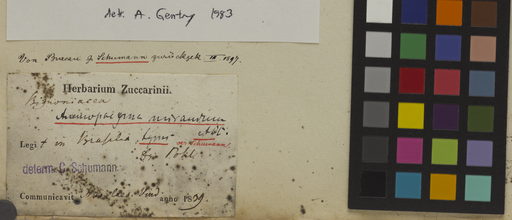 det. A. Gentry 1983
Von Bureau & Schumann zurückgek. III 1897.
Herbarium Zuccarinii.
Bignoniacea
Anemopaegma mirandum
Legi + in Brasilia,
Dr Pohl
determ. C. Schumann.
Communicavit anno 1839